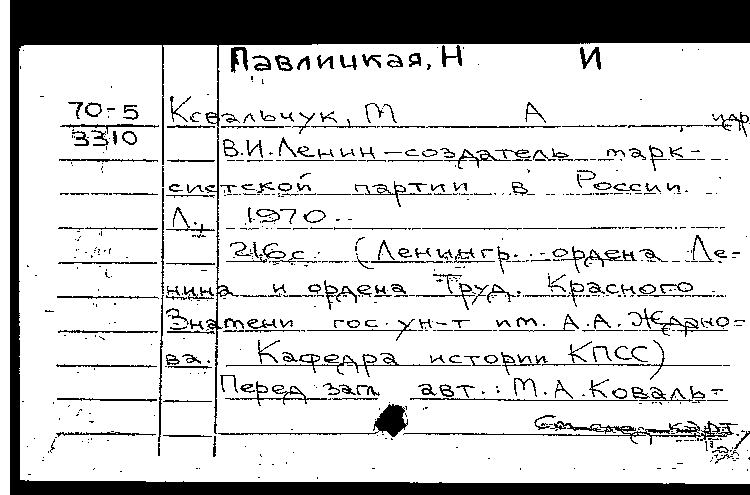 Павлицкая, Н И
70-5 Ковальчук, М А и др
3310
В.И.Ленин—создатель марк-
систской партии в России.
Л., 1970..
216с. (Ленингр. ордена Ле-
нина и ордена Труд. Красного
Знамени гос. ун-т им. А.А. Ждано-
ва. Кафедра истории КПСС)
Перед загл. авт.: М.А. Коваль-
См. след. карт.